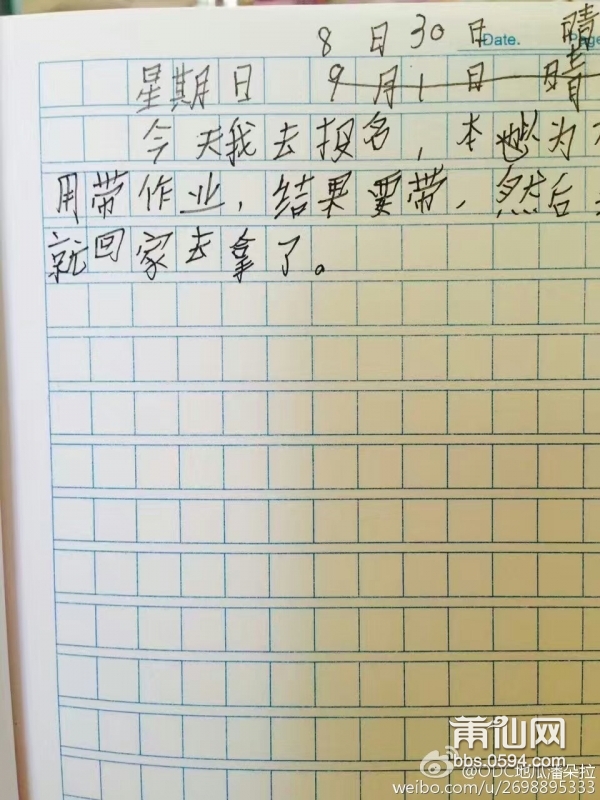 8月30日 晴
Date.
Page
星期日 9月1日 晴
今天我去报名，本以为
用带作业，结果要带，然后
就回家去拿了。
莆仙网
bbs.0594.com
@ODC地瓜潘朵拉
weibo.com/u/2698895333